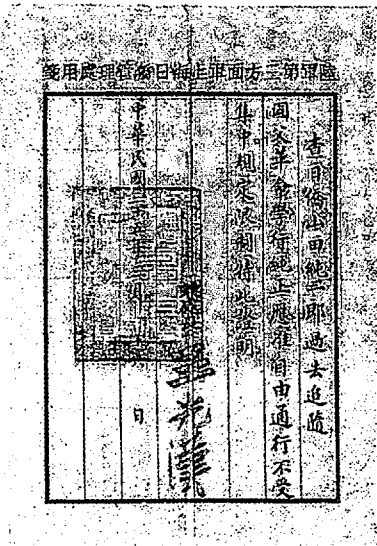 陸軍第三方面軍上海日僑管理處用箋
查日僑山田純三郎過去追隨
國父革命學行純正應准自由通行不受
集中規定限制特此證明
王光漢
中華民國三十五年 月 日